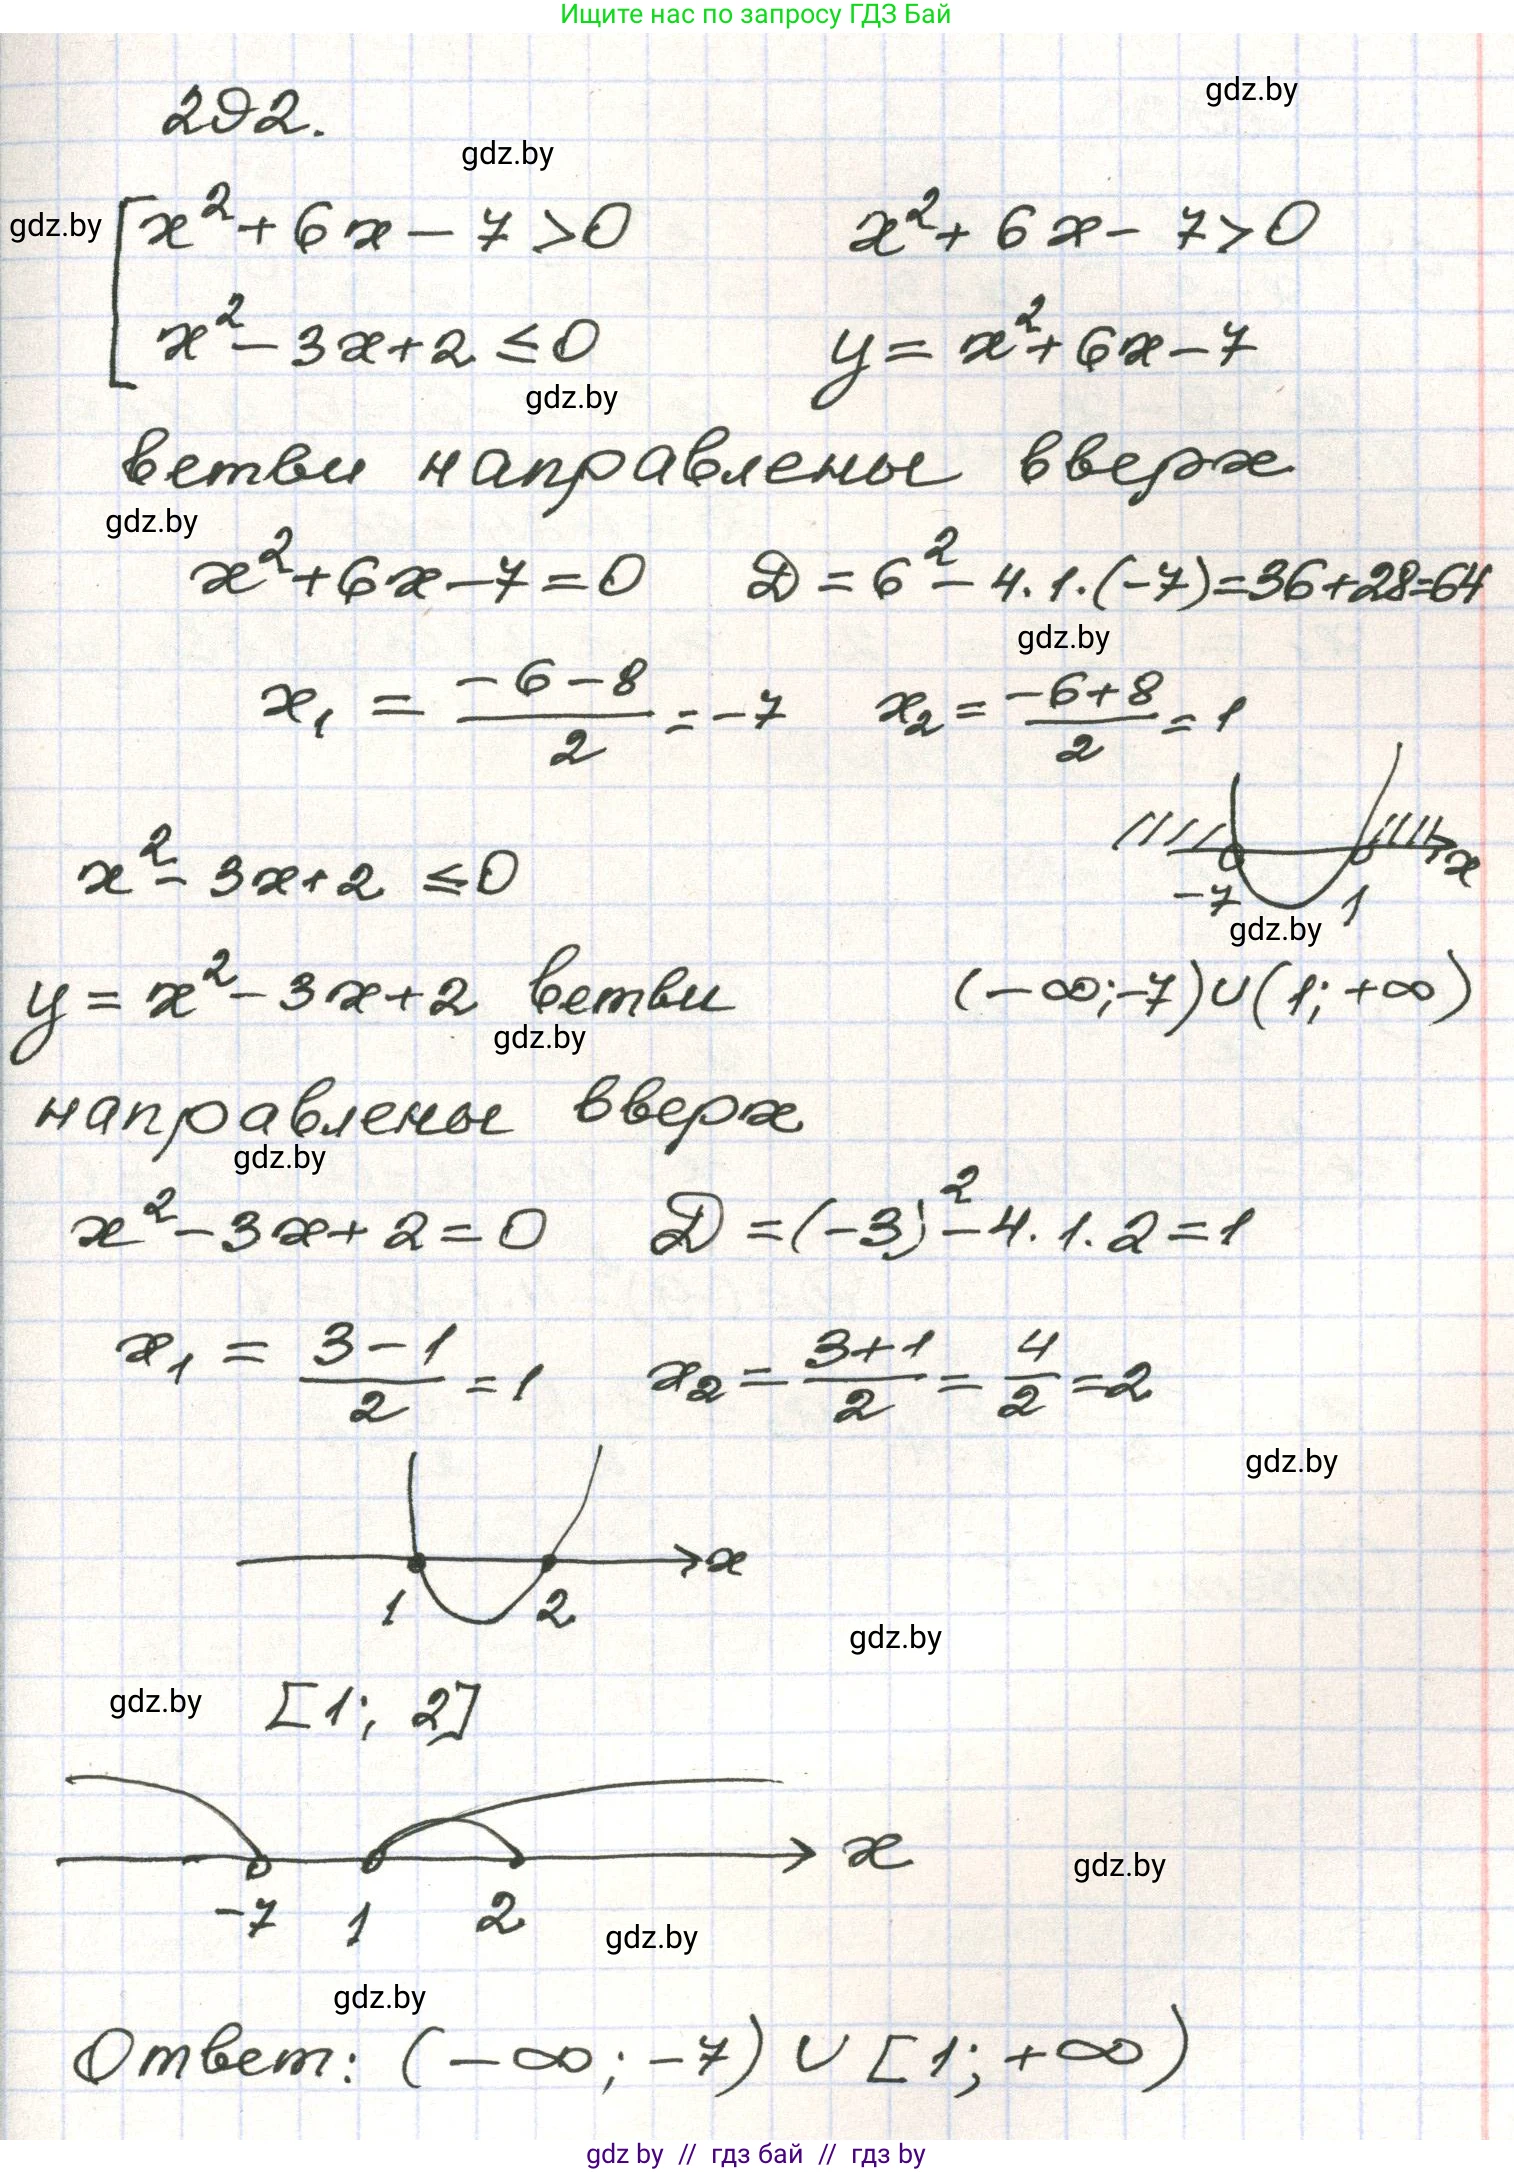 Ищите нас по запросу ГДЗ Бай
gdz.by
292.
gdz.by
gdz.by
x² + 6x − 7 > 0
x² + 6x − 7 > 0
x² − 3x + 2 ≤ 0
y = x² + 6x − 7
gdz.by
ветви направлены вверх
gdz.by
x² + 6x − 7 = 0 D = 6² − 4·1·(−7) = 36 + 28 = 64
gdz.by
x₁ = (−6 − 8)/2 = −7 x₂ = (−6 + 8)/2 = 1
x
−7 1
x² − 3x + 2 ≤ 0
gdz.by
y = x² − 3x + 2 ветви
(−∞; −7) ∪ (1; +∞)
gdz.by
направлены вверх
gdz.by
x² − 3x + 2 = 0 D = (−3)² − 4·1·2 = 1
x₁ = (3 − 1)/2 = 1 x₂ = (3 + 1)/2 = 4/2 = 2
gdz.by
x
1 2
gdz.by
gdz.by
[1; 2]
x
gdz.by
−7 1 2
gdz.by
gdz.by
Ответ: (−∞; −7) ∪ [1; +∞)
gdz by // гдз бай // гдз by